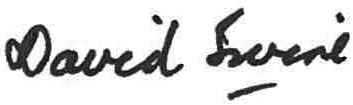 David Irvine